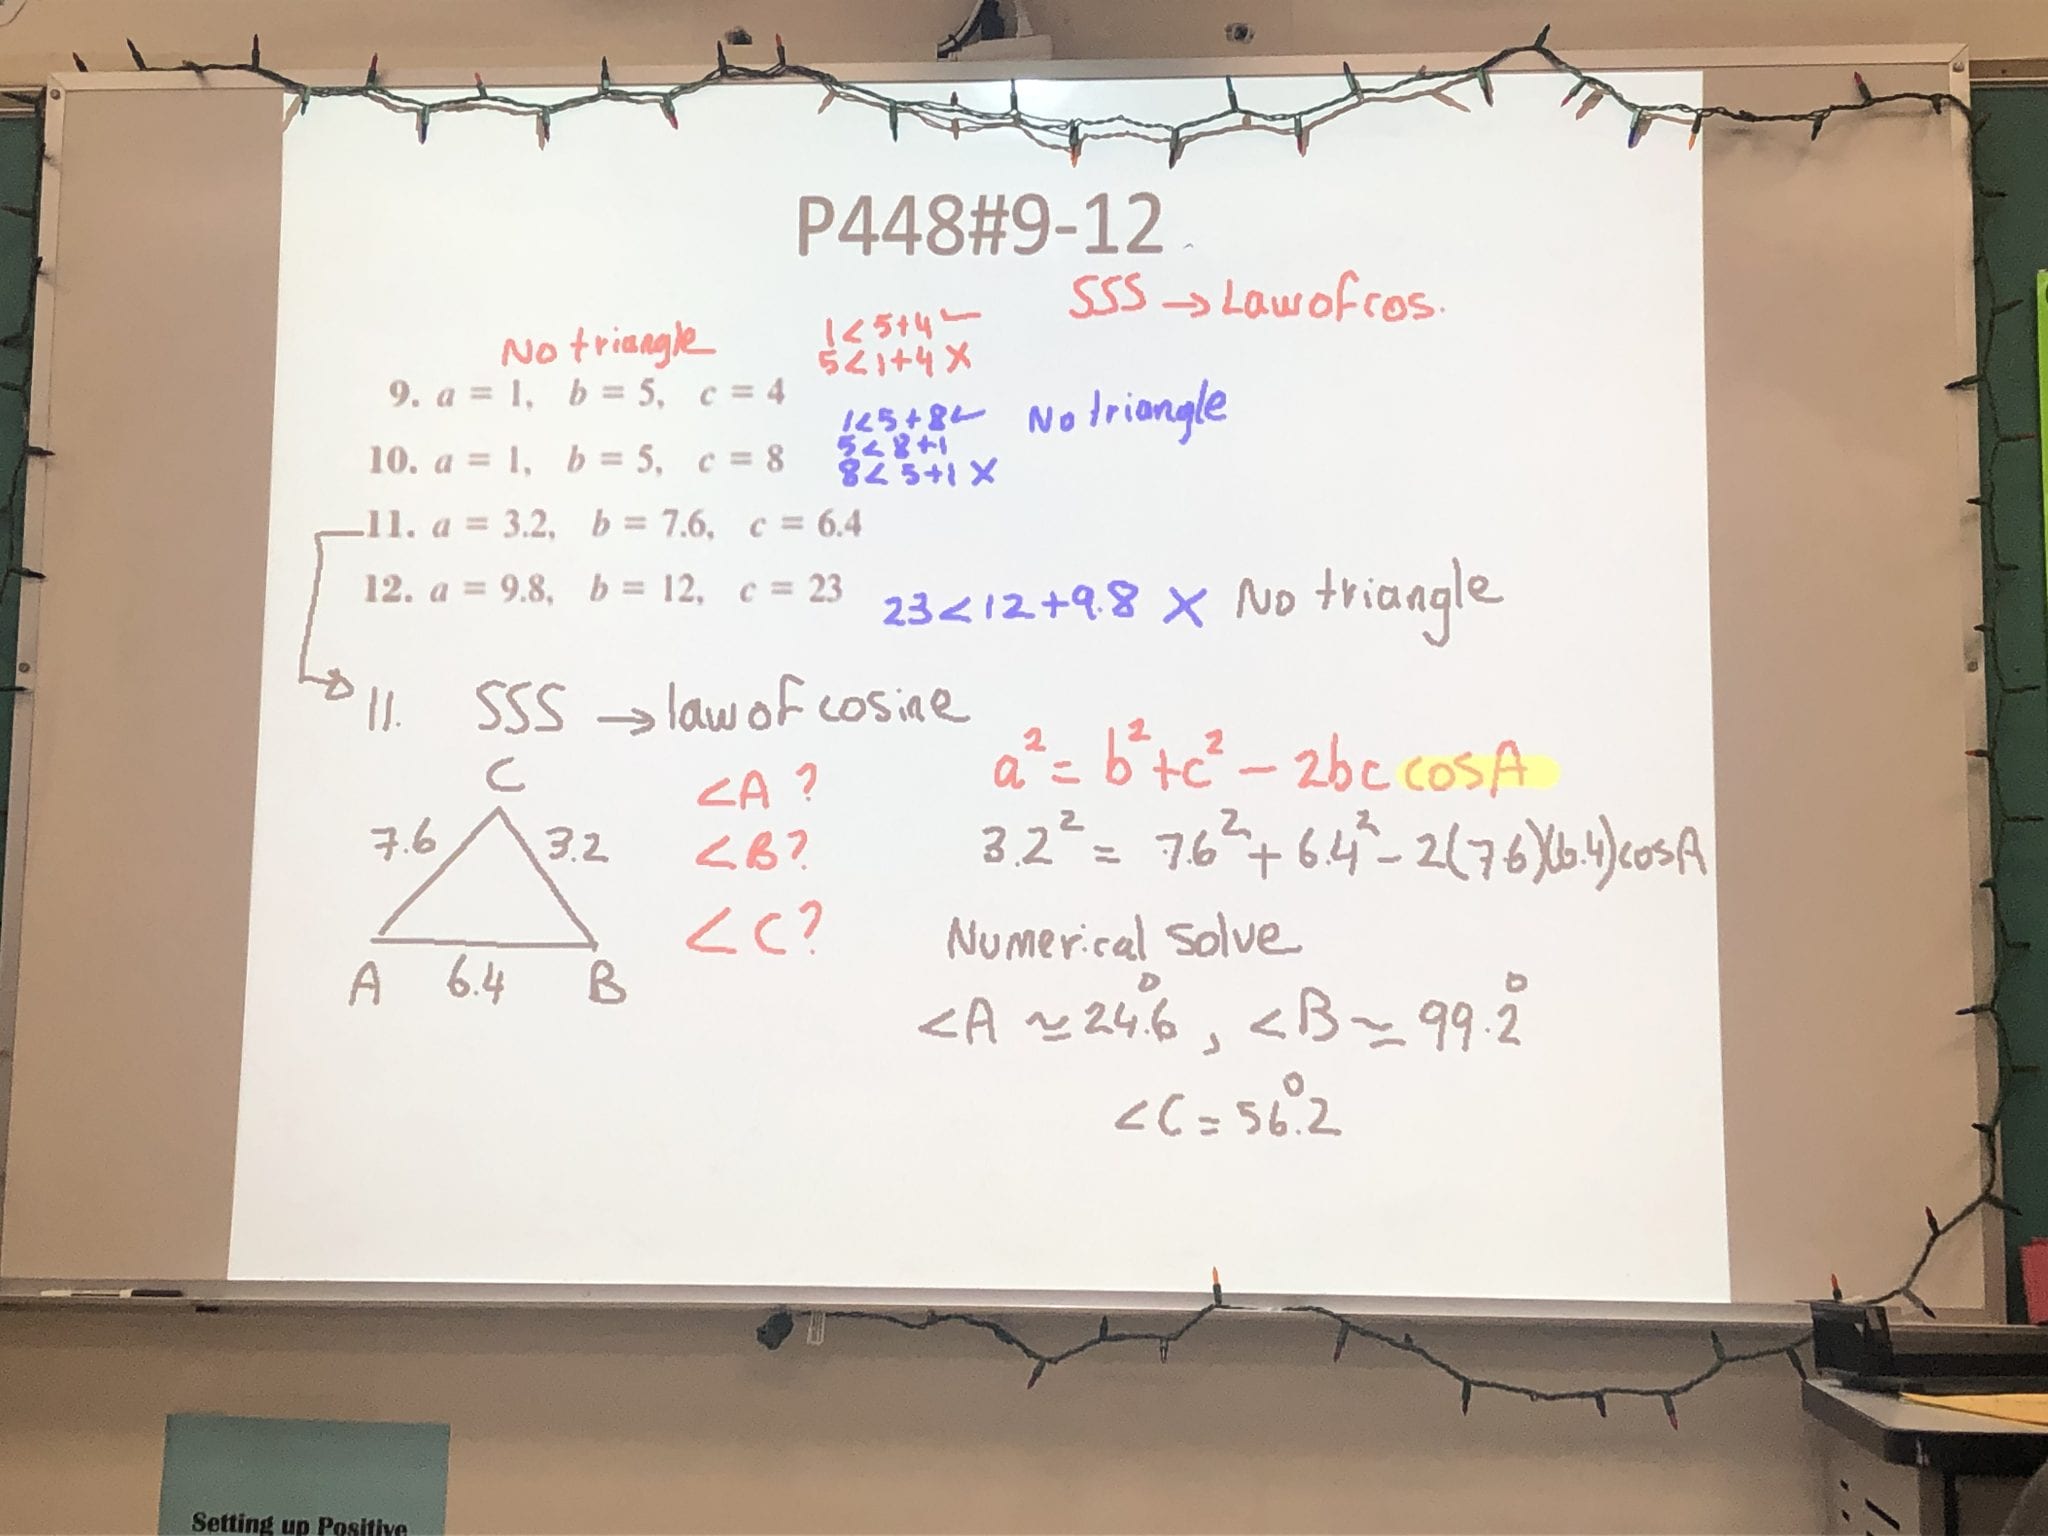 P448#9-12
SSS → Law of cos.
No triangle
1<5+4 ✓
5<1+4 X
9. a = 1, b = 5, c = 4
1<5+8 ✓
No triangle
5<8+1
10. a = 1, b = 5, c = 8
8<5+1 X
11. a = 3.2, b = 7.6, c = 6.4
12. a = 9.8, b = 12, c = 23
23<12+9.8 X No triangle
11. SSS → law of cosine
C
7.6
3.2
A
6.4
B
<A ?
<B?
<C?
a² = b²+c² − 2bc cosA
3.2² = 7.6² + 6.4² − 2(7.6)(6.4)cosA
Numerical solve
<A ≃ 24.6°, <B ≃ 99.2°
<C = 56.2°
Setting up Positive